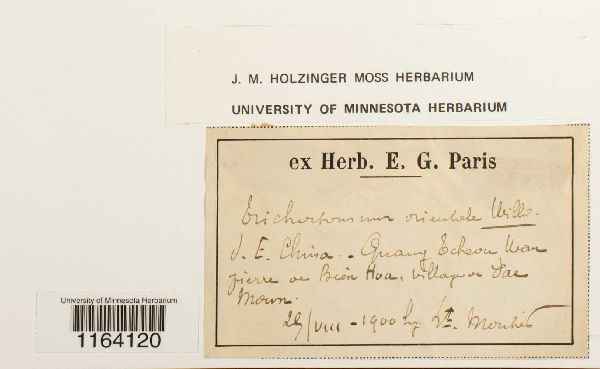 J. M. HOLZINGER MOSS HERBARIUM
UNIVERSITY OF MINNESOTA HERBARIUM
ex Herb. E. G. Paris
Trichostomum orientale Willd.
S. E. China. - Quang Tcheou Wan
Hoa, village
29/VIII - 1900 by Lt.
University of Minnesota Herbarium
1164120